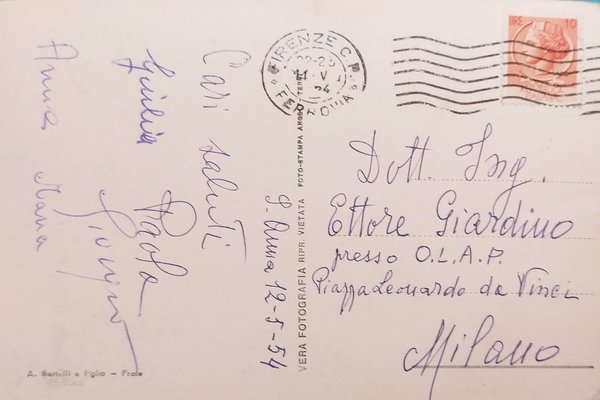 Cari saluti
Giulia Paola
Anna Maria
S. Anna 12-5-54
FIRENZE C.P.
FERROVIA
LIRE 10
VERA FOTOGRAFIA RIPR. VIETATA FOTO-STAMPA
Dott. Ing.
Ettore Giardino
presso O.L.A.P.
Piazza Leonardo da Vinci
Milano
A. Bartelli e Figlio – Prato